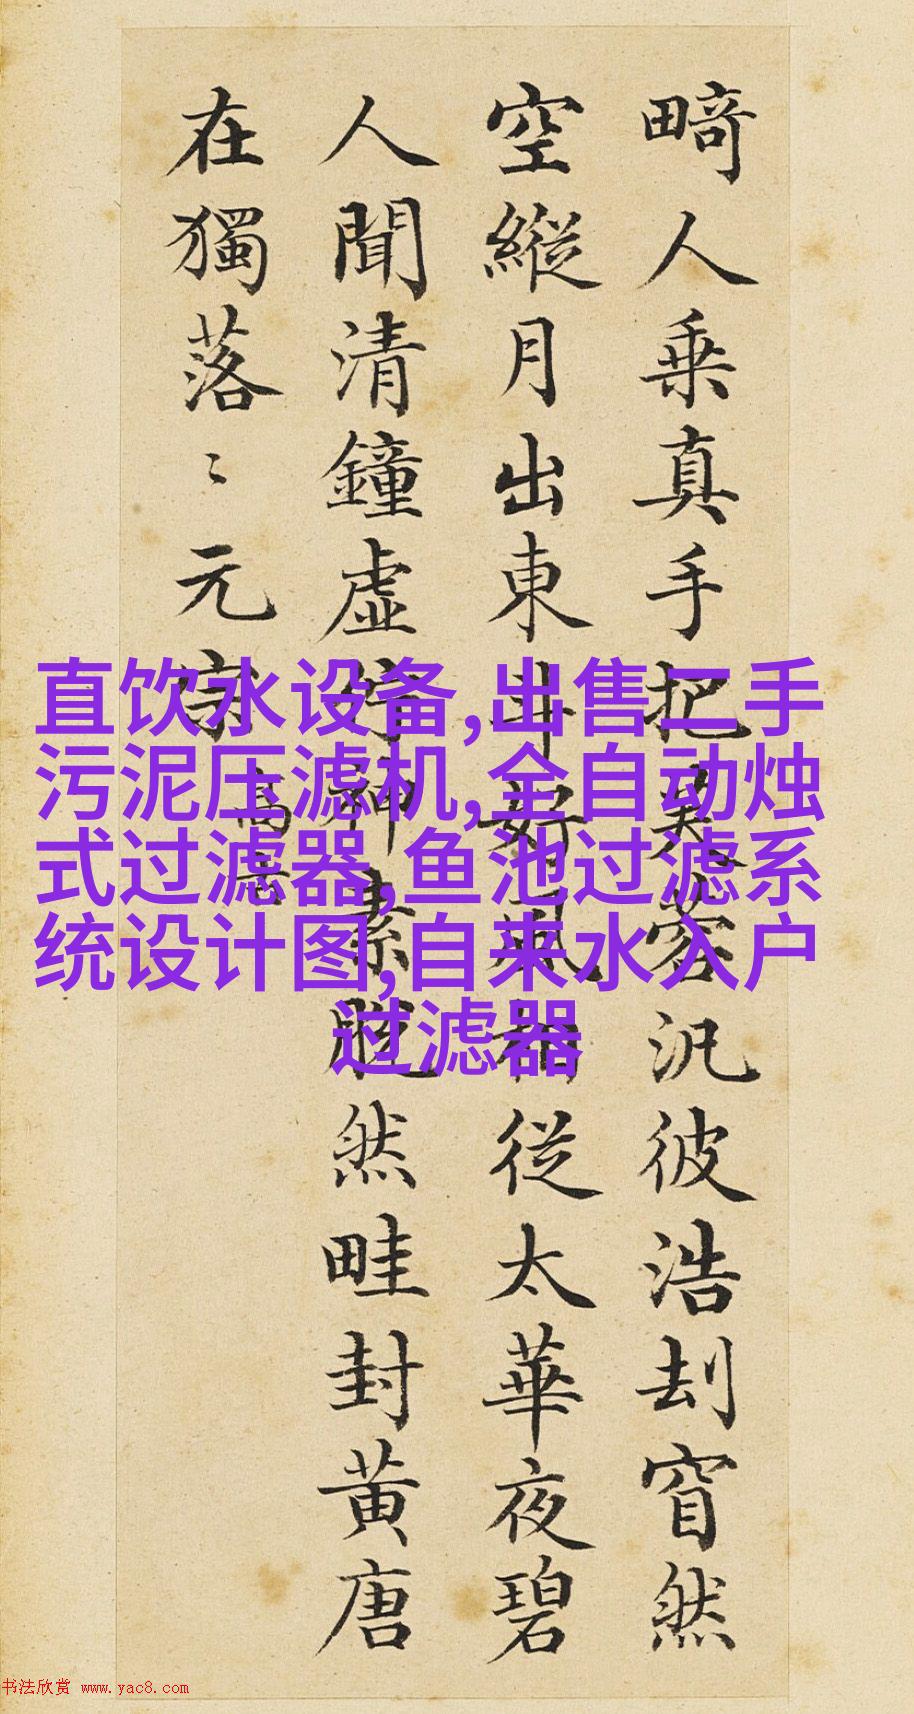 畸人乗真手把芙蓉汎彼浩刦窅然
空縱月出東斗好風相從太華夜碧
人聞清鐘虛神素脫然畦封黃唐
在獨落〻元宗
高古
直饮水设备,出售二手
污泥压滤机,全自动烛
式过滤器,鱼池过滤系
统设计图,自来水入户
过滤器
书法欣赏 www.yac8.com